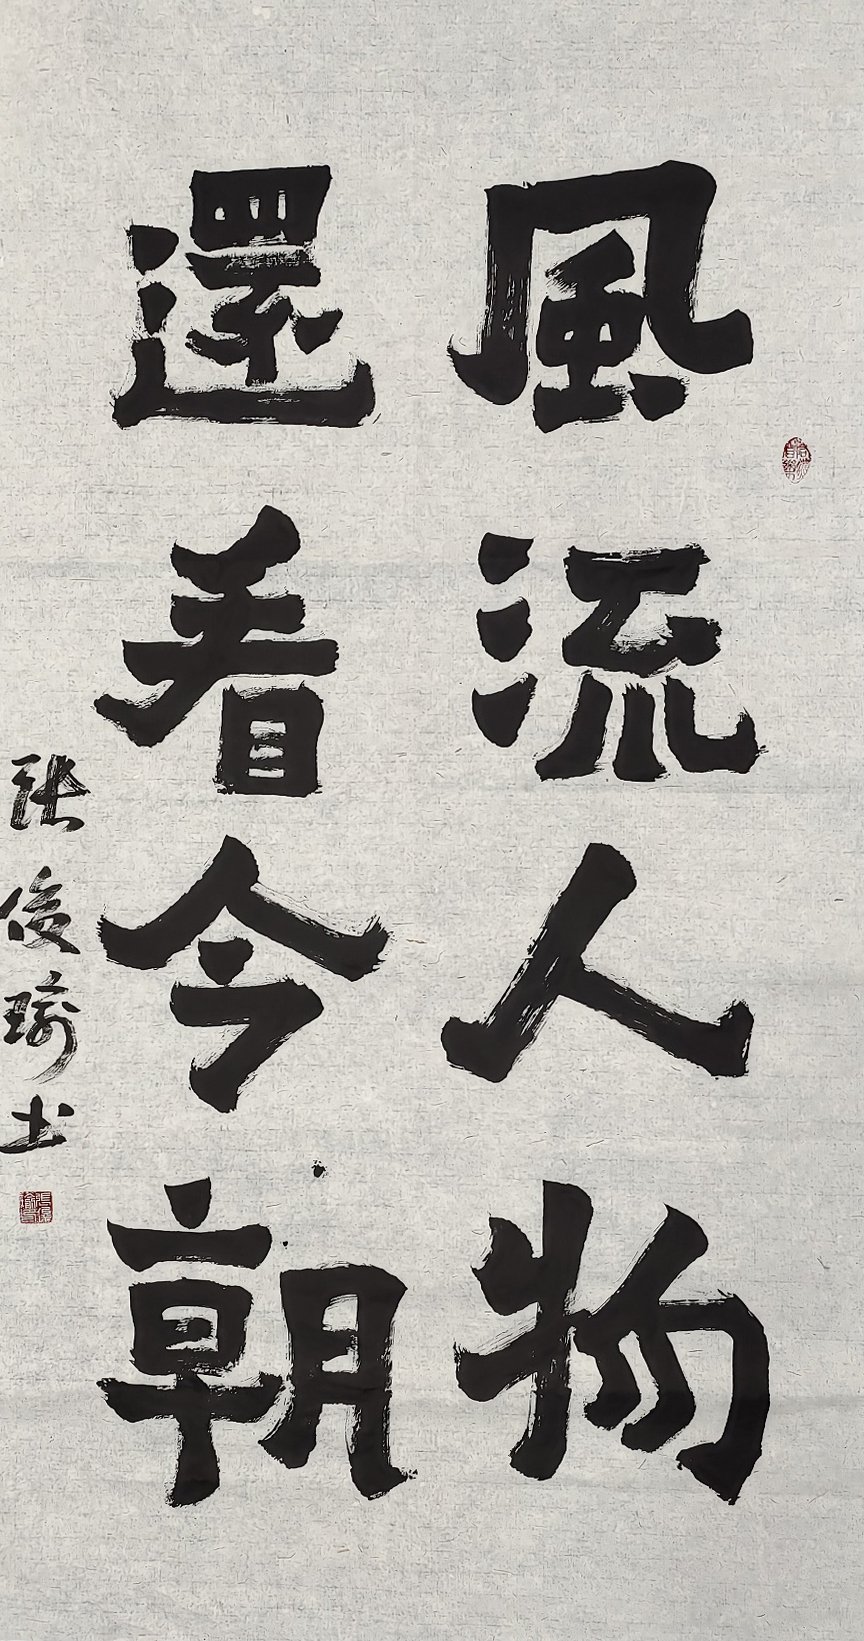 風流人物
還看今朝
張俊瑜书